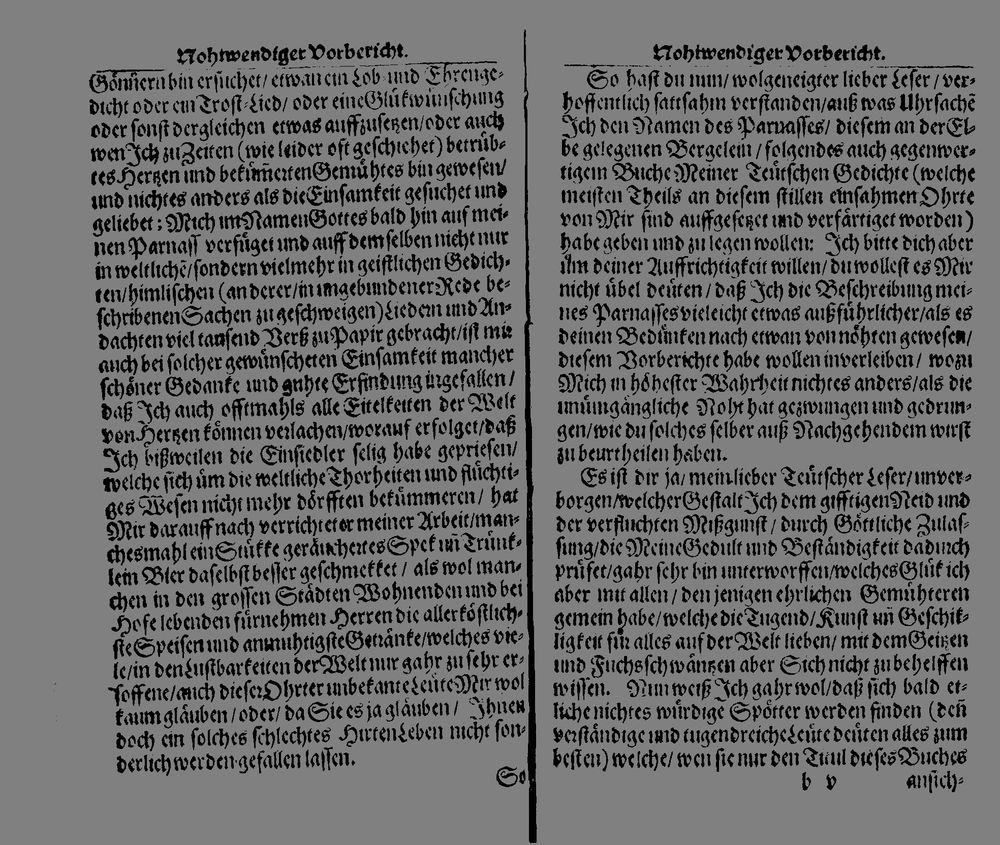 Nohtwendiger Vorbericht.
Gönnern bin ersuchet/ etwan ein Lob- und Ehrenge-
dicht oder ein Trost-Lied/ oder eine Glükwünschung
oder sonst dergleichen etwas auffzusetzen/oder auch
wen Ich zu Zeiten (wie leider oft geschiehet) betrüb-
tes Hertzen und bekümerten Gemühtes bin gewesen/
und nichtes anders als die Einsamkeit gesuchet und
geliebet; Mich im Namen Gottes bald hin auf mei-
nen Parnass verfüget und auff demselben nicht nur
in weltlichē/sondern vielmehr in geistlichen Gedich-
ten/himlischen (anderer/in ungebundener Rede be-
schribenen Sachen zu geschweigen) Liedern und An-
dachten viel tausend Verß zu Papir gebracht/ist mir
auch bei solcher gewünscheten Einsamkeit mancher
schöner Gedanke und guhte Erfindung ingefallen/
daß Ich auch offtmahls alle Eitelkeiten der Welt
von Hertzen können verlachen/worauf erfolget/daß
Ich bißweilen die Einsiedler selig habe gepriesen/
welche sich üm die weltliche Thorheiten und flüchti-
ges Wesen nicht mehr dörfften bekümmeren/ hat
Mir darauff nach verrichteter meiner Arbeit/man-
chesmahl ein Stükke geräuchertes Spek uñ Trünk-
lein Bier daselbst besser geschmekket/ als wol man-
chen in den grossen Städten Wohnenden und bei
Hofe lebenden fürnehmen Herren die allerköstlich-
ste Speisen und anmuhtigste Getränke/welches vie-
le/in den Lustbarkeiten der Welt nur gahr zu sehr er-
soffene/auch dieser Ohrter unbekante Leüte Mir wol
kaum gläuben/ oder/ da Sie es ja gläuben/ Ihnen
doch ein solches schlechtes Hirten Leben nicht son-
derlich werden gefallen lassen.
So
Nohtwendiger Vorbericht.
So hast du nun/ wolgeneigter lieber Leser/ ver-
hoffentlich sattsahm verstanden/auß was Uhrsachē
Ich den Namen des Parnasses/ diesem an der El-
be gelegenen Bergelein/ folgendes auch gegenwer-
tigem Buche Meiner Teütschen Gedichte (welche
meisten Theils an diesem stillen einsahmen Ohrte
von Mir sind auffgesetzet und verfärtiget worden)
habe geben und zu legen wollen: Ich bitte dich aber
üm deiner Auffrichtigkeit willen/ du wollest es Mir
nicht übel deüten/ daß Ich die Beschreibung mei-
nes Parnasses vieleicht etwas außführlicher/als es
deinen Bedünken nach etwan von nöhten gewesen/
diesem Vorberichte habe wollen inverleiben/ wozu
Mich in höhester Wahrheit nichtes anders/als die
unümgängliche Noht hat gezwungen und gedrun-
gen/wie du solches selber auß Nachgehendem wirst
zu beurtheilen haben.
Es ist dir ja/ mein lieber Teütscher Leser/unver-
borgen/welcher Gestalt Ich dem gifftigen Neid und
der verfluchten Mißgunst/ durch Göttliche Zulas-
sung/die Meine Gedult und Beständigkeit dadurch
prüfet/gahr sehr bin unterworffen/welches Glük ich
aber mit allen/ den jenigen ehrlichen Gemühteren
gemein habe/welche die Tugend/Kunst uñ Geschik-
ligkeit für alles auf der Welt lieben/ mit dem Geitzen
und Fuchsschwäntzen aber Sich nicht zu behelffen
wissen. Nun weiß Ich gahr wol/daß sich bald et-
liche nichtes würdige Spötter werden finden (deñ
verständige und tugendreiche Leüte deüten alles zum
besten) welche/ wen sie nur den Titul dieses Buches
b v ansich-